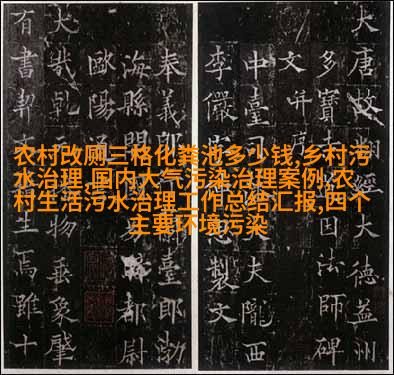 农村改厕三格化粪池多少钱,乡村污
水治理,国内大气污染治理案例,农
村生活污水治理工作总结汇报,四个
主要环境污染
大唐故翻經大德益州
多寶因法師碑
文并序
中臺司大夫隴西
李儼製文
奉義郎臺郎渤
海縣開都尉
歐陽通
大哉乾元物垂象肇
有書契生焉雖十